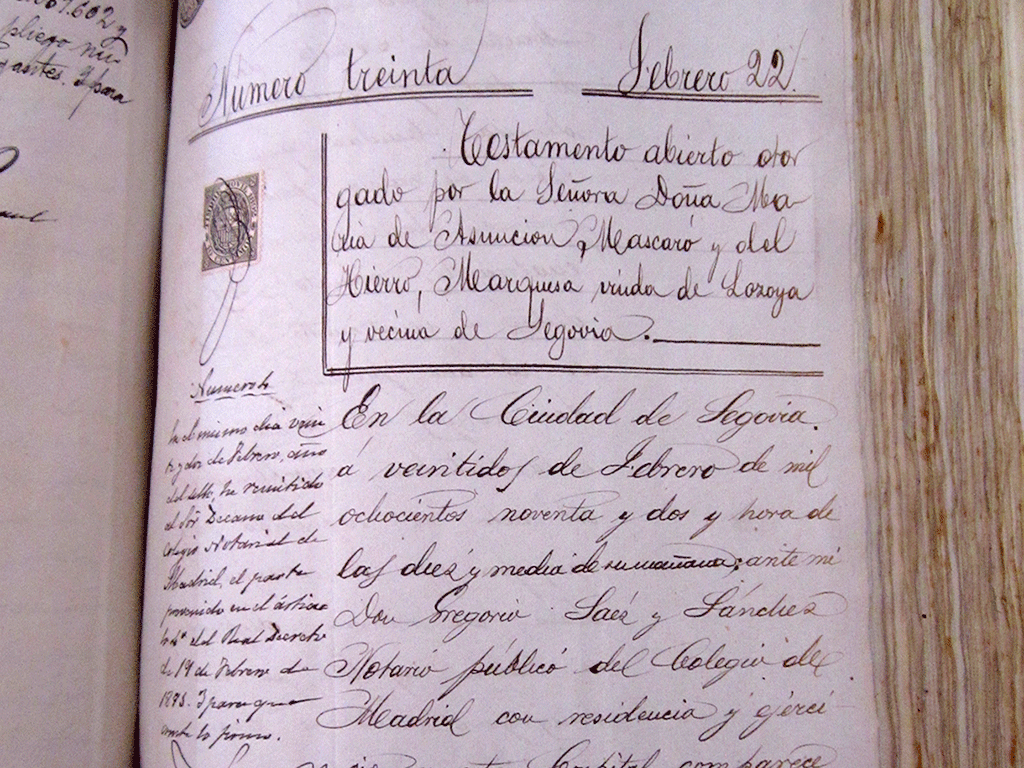 pliego nu-
Numero treinta Febrero 22.
Testamento abierto otor
gado por la Señora Doña Ma-
ria de Asuncion Mascaró y del
Hierro, Marquesa viuda de Lozoya
y vecina de Segovia.
Numero
En el mismo dia vein
te y dos de Febrero, año
del sello, he remitido
al Sor Decano del
Colegio Notarial de
Madrid, el parte
prevenido en el
del Real Decreto
de 14 de Febrero de
Y para que
conste lo firmo.
En la Ciudad de Segovia.
á veintidos de Febrero de mil
ochocientos noventa y dos y hora de
las diez y media de su mañana; ante mi
Don Gregorio Saéz y Sánchez
Notario público del Colegio de
Madrid con residencia y ejerci-
Capital comparece